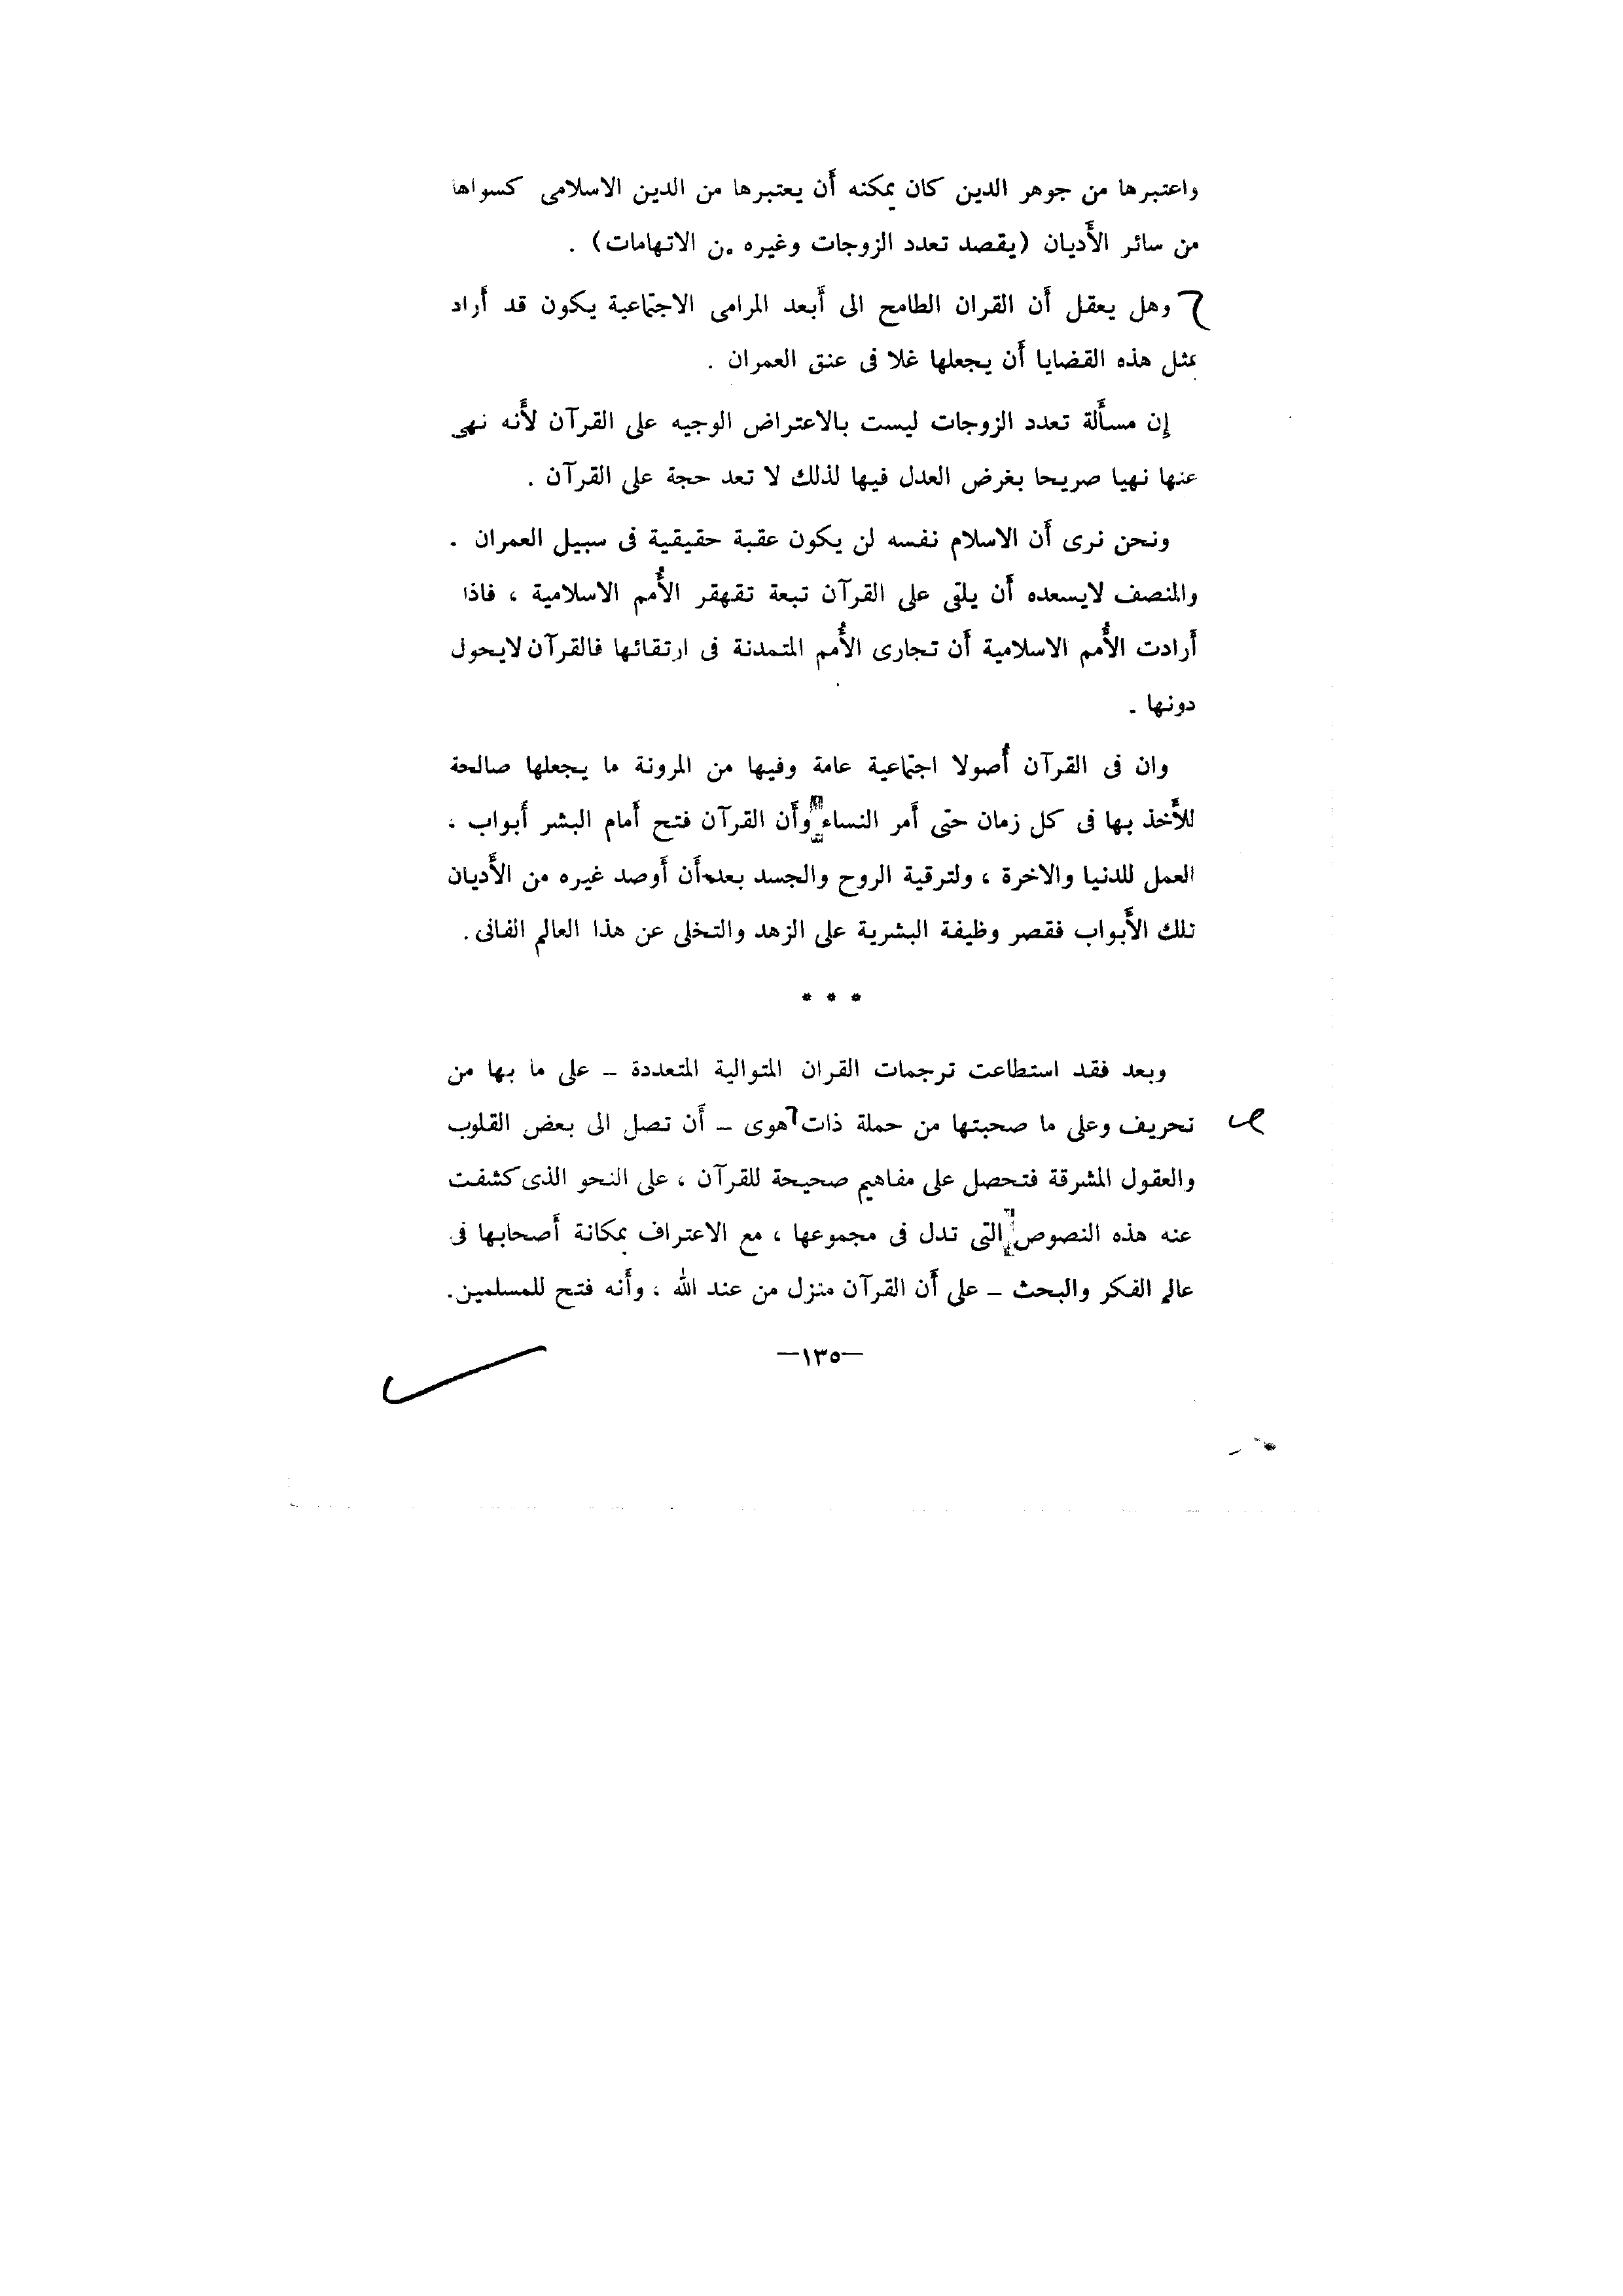 واعتبرها من جوهر الدين كان يمكنه أن يعتبرها من الدين الاسلامى كسواها
من سائر الأديان (يقصد تعدد الزوجات وغيره من الاتهامات) .
وهل يعقل أن القران الطامح الى أبعد المرامى الاجتماعية يكون قد أراد
بمثل هذه القضايا أن يجعلها غلا فى عنق العمران .
إن مسألة تعدد الزوجات ليست بالاعتراض الوجيه على القرآن لأنه نهى
عنها نهيا صريحا بغرض العدل فيها لذلك لا تعد حجة على القرآن .
ونحن نرى أن الاسلام نفسه لن يكون عقبة حقيقية فى سبيل العمران .
والمنصف لايسعده أن يلقى على القرآن تبعة تقهقر الأُمم الاسلامية ، فاذا
أرادت الأُمم الاسلامية أن تجارى الأُمم المتمدنة فى ارتقائها فالقرآن لايحول
دونها .
وان فى القرآن أُصولا اجتماعية عامة وفيها من المرونة ما يجعلها صالحة
للأَخذ بها فى كل زمان حتى أَمر النساء وأَن القرآن فتح أَمام البشر أَبواب ،
العمل للدنيا والاخرة ، ولترقية الروح والجسد بعد أَن أَوصد غيره من الأَديان
تلك الأَبواب فقصر وظيفة البشرية على الزهد والتخلى عن هذا العالم الفانى .
* * *
وبعد فقد استطاعت ترجمات القران المتوالية المتعددة – على ما بها من
تحريف وعلى ما صحبتها من حملة ذات هوى – أَن تصل الى بعض القلوب
والعقول المشرقة فتحصل على مفاهيم صحيحة للقرآن ، على النحو الذى كشفت
عنه هذه النصوص التى تدل فى مجموعها ، مع الاعتراف بمكانة أَصحابها فى
عالم الفكر والبحث – على أَن القرآن منزل من عند الله ، وأَنه فتح للمسلمين .
—١٣٥—